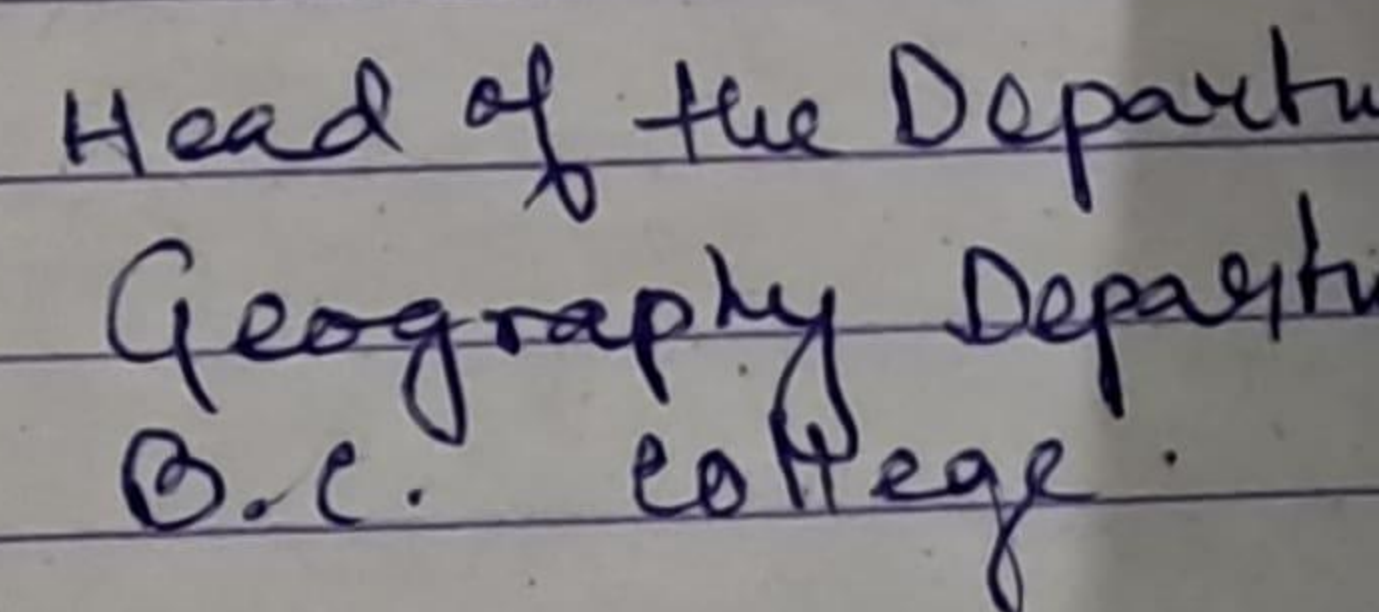 Head of the Departm
Geography Departm
B.C. College.